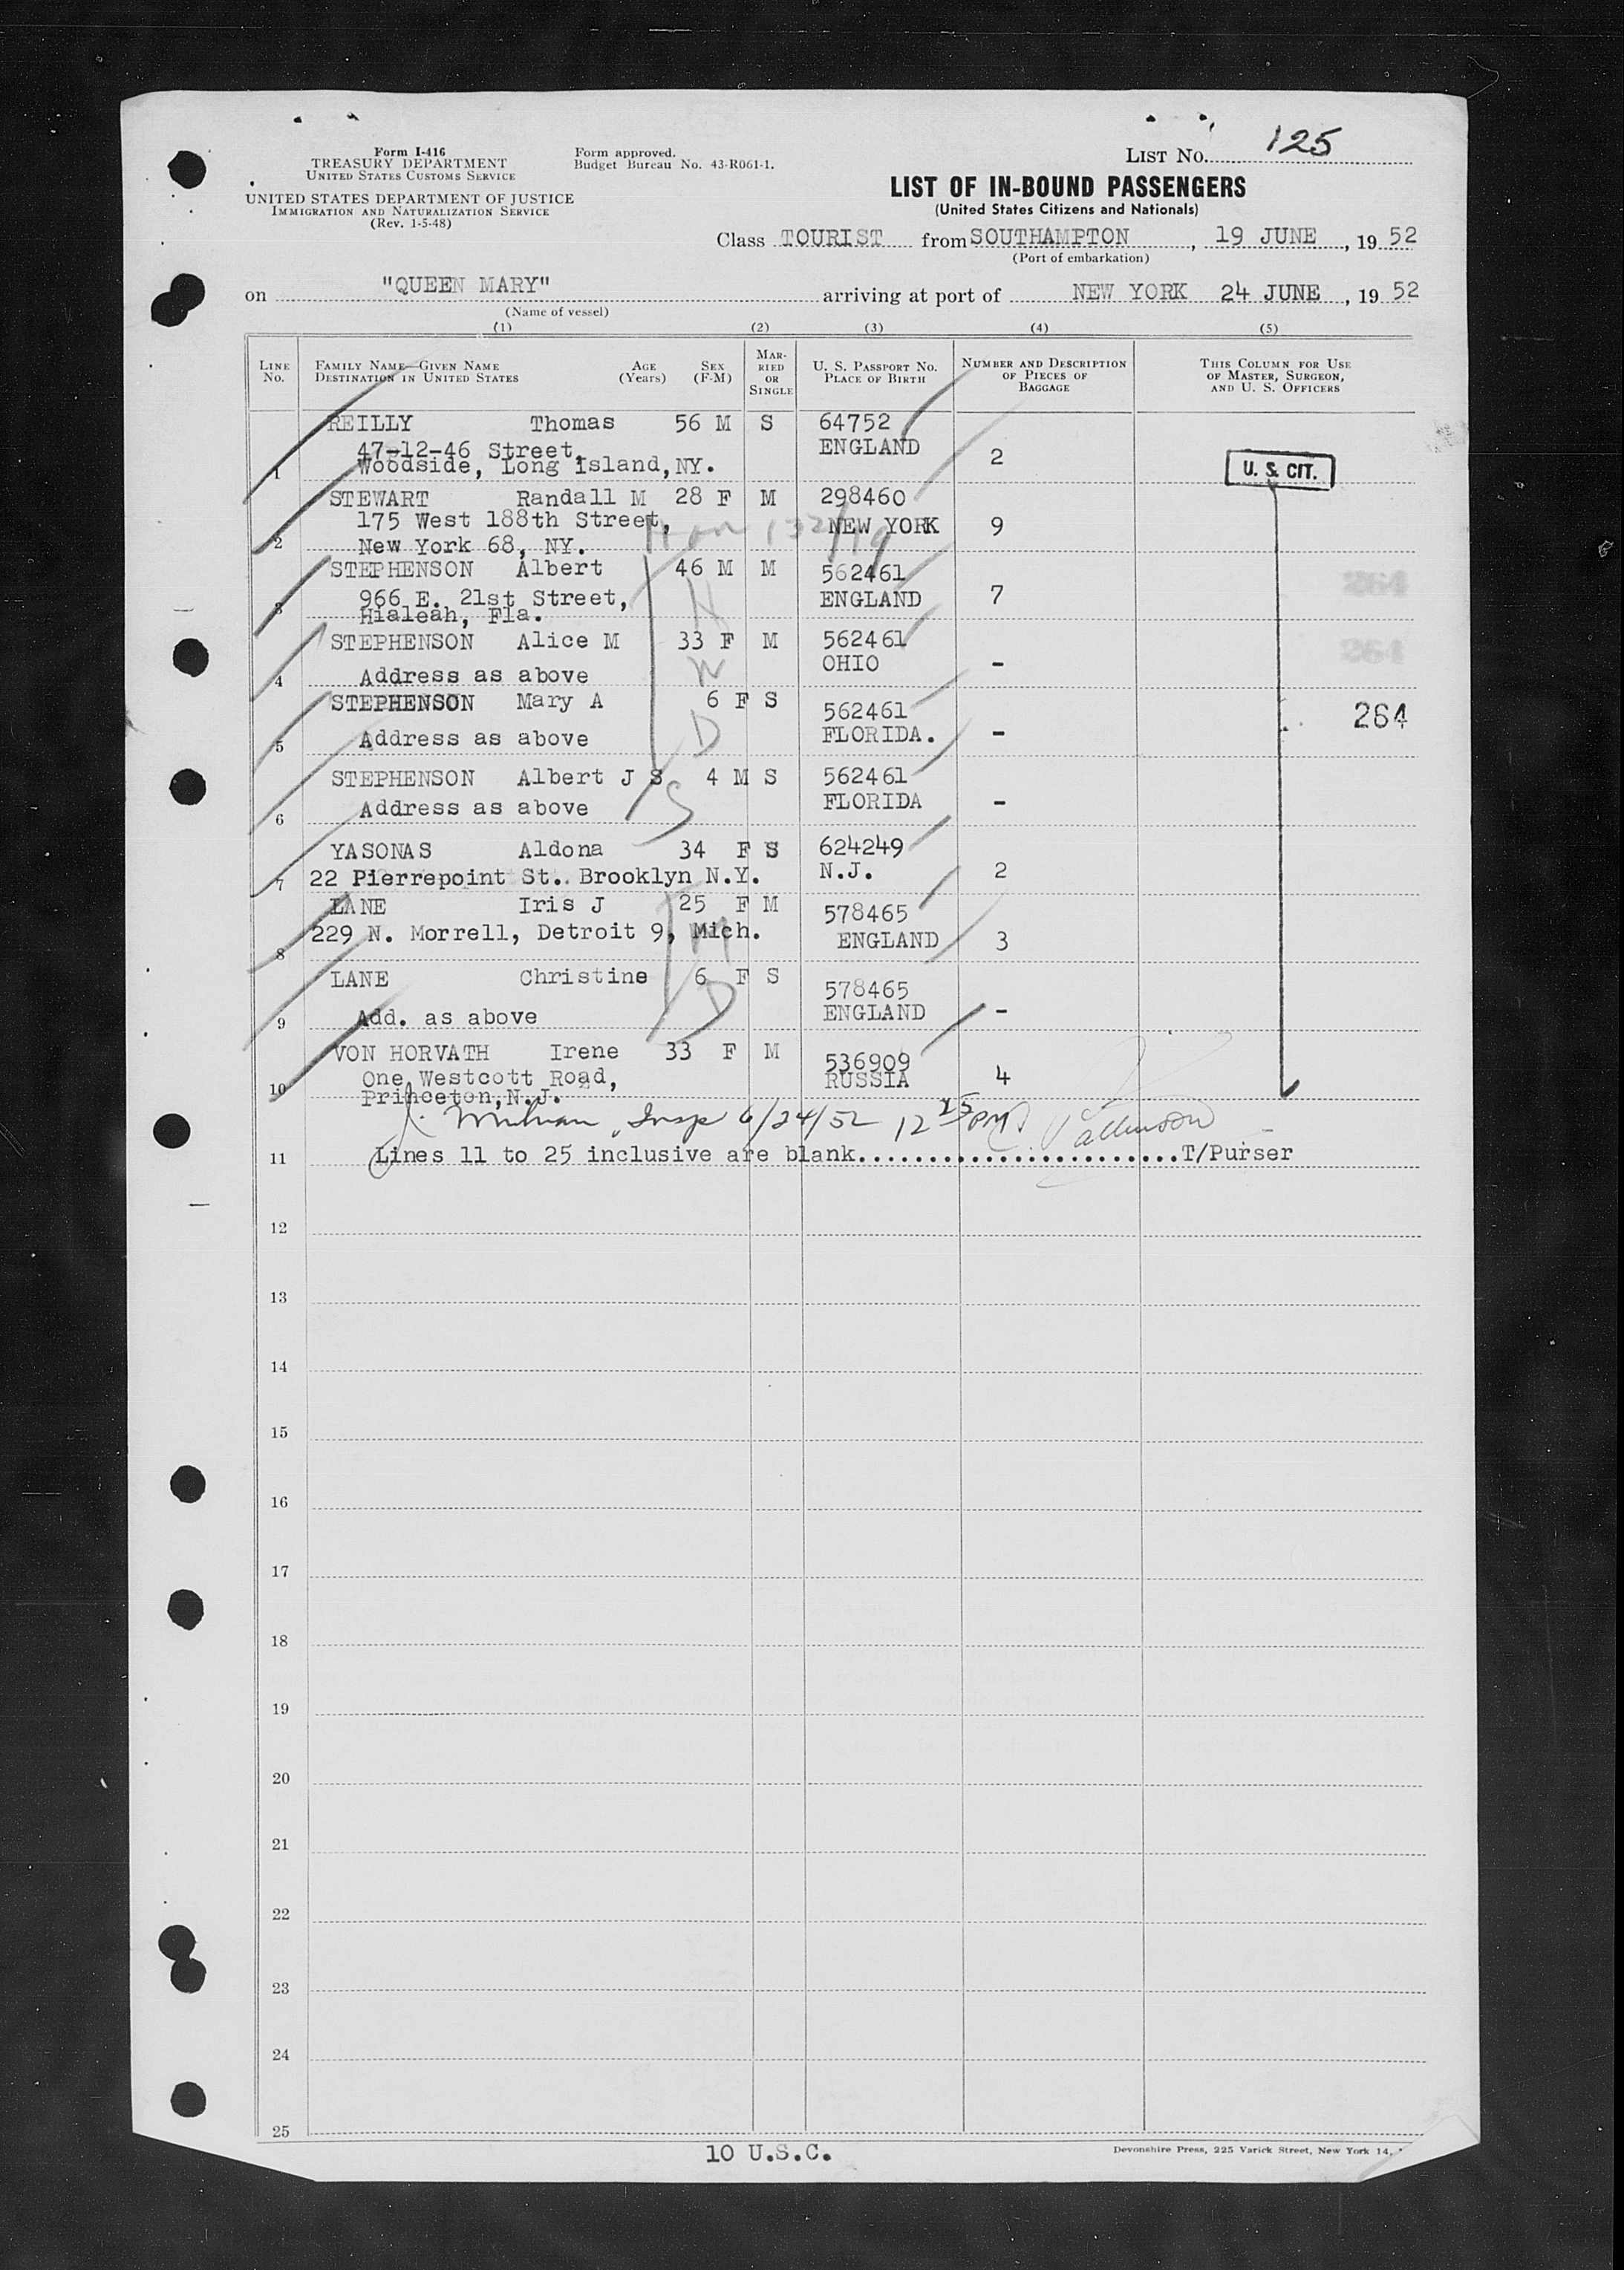 Form I-416
TREASURY DEPARTMENT
UNITED STATES CUSTOMS SERVICE
UNITED STATES DEPARTMENT OF JUSTICE
IMMIGRATION AND NATURALIZATION SERVICE
(Rev. 1-5-48)
Form approved.
Budget Bureau No. 43-R061-1.
LIST NO. 125
LIST OF IN-BOUND PASSENGERS
(United States Citizens and Nationals)
Class TOURIST from SOUTHAMPTON, 19 JUNE, 19 52
(Port of embarkation)
on "QUEEN MARY" arriving at port of NEW YORK 24 JUNE, 19 52
(Name of vessel)
(1) (2) (3) (4) (5)
LINE NO.
FAMILY NAME—GIVEN NAME
DESTINATION IN UNITED STATES
AGE (Years)
SEX (F-M)
MARRIED OR SINGLE
U. S. PASSPORT NO.
PLACE OF BIRTH
NUMBER AND DESCRIPTION OF PIECES OF BAGGAGE
THIS COLUMN FOR USE OF MASTER, SURGEON, AND U. S. OFFICERS
REILLY Thomas 56 M S 64752
47-12-46 Street, ENGLAND
1 Woodside, Long Island, NY. 2
U. S. CIT.
STEWART Randall M 28 F M 298460
175 West 188th Street, NEW YORK 9
2 New York 68, NY.
STEPHENSON Albert 46 M M 562461
966 E. 21st Street, ENGLAND 7
3 Hialeah, Fla.
264
STEPHENSON Alice M 33 F M 562461
OHIO -
4 Address as above
264
STEPHENSON Mary A 6 F S 562461
264
5 Address as above FLORIDA. -
STEPHENSON Albert J S 4 M S 562461
6 Address as above FLORIDA -
YASONAS Aldona 34 F S 624249
7 22 Pierrepoint St. Brooklyn N.Y. N.J. 2
LANE Iris J 25 F M 578465
8 229 N. Morrell, Detroit 9, Mich. ENGLAND 3
LANE Christine 6 F S 578465
9 Add. as above ENGLAND -
VON HORVATH Irene 33 F M 536909
One Westcott Road, RUSSIA 4
10 Princeton, N.J.
Insp 6/24/52 12 25 PM
11 Lines 11 to 25 inclusive are blank........................T/Purser
12
13
14
15
16
17
18
19
20
21
22
23
24
25
10 U.S.C.
Devonshire Press, 225 Varick Street, New York 14,